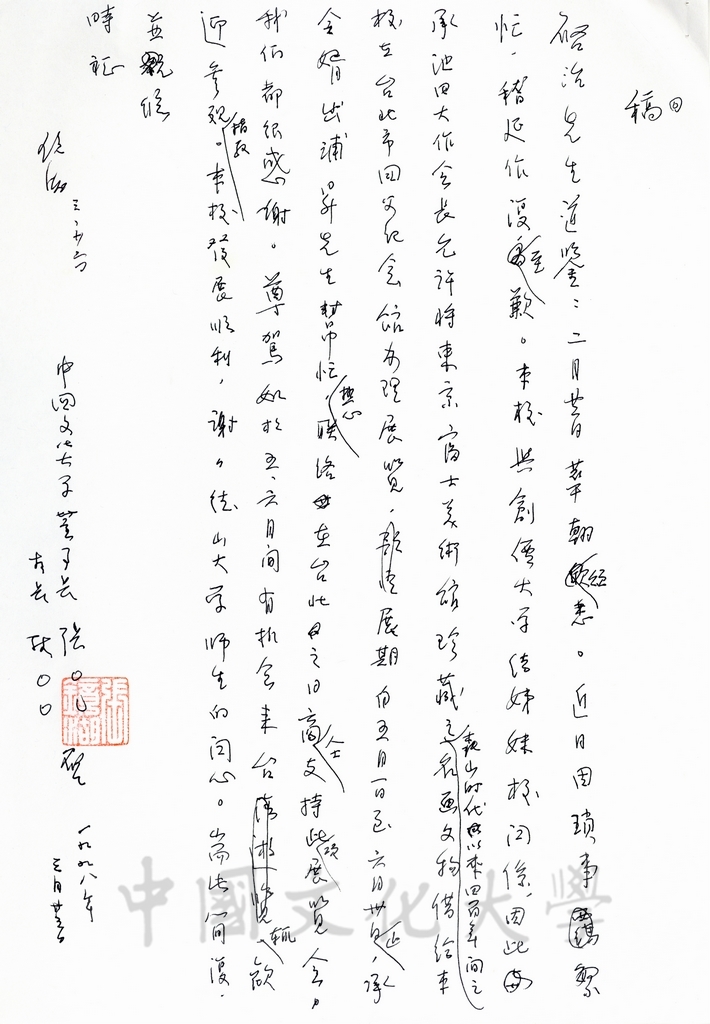 稿
啟治先生道鑒：二月廿日華翰敬悉。近日因瑣事
忙，稽延作復至歉。本校與創價大學結姊妹校關係，因此
承池田大作會長允許將東京富士美術館珍藏之名畫文物借給本
桃山時代以來四百年間之
校在台北市國父紀念館辦理展覽，展期自五月一日至六月卅日止，承
令婿出浦昇先生幫忙，熱心聯絡在台北之日商人士支持此項展覽會，
我們都很感謝。尊駕如於五、六月間有機會來台灣遊覽，歡
迎參觀指教。本校發展順利，謝謝德山大學師生的關心。耑此簡復，
並頌
時祉
中國文化大學董事長 張○○
校長 林○○
一九九八年
三月廿
中國文化大學